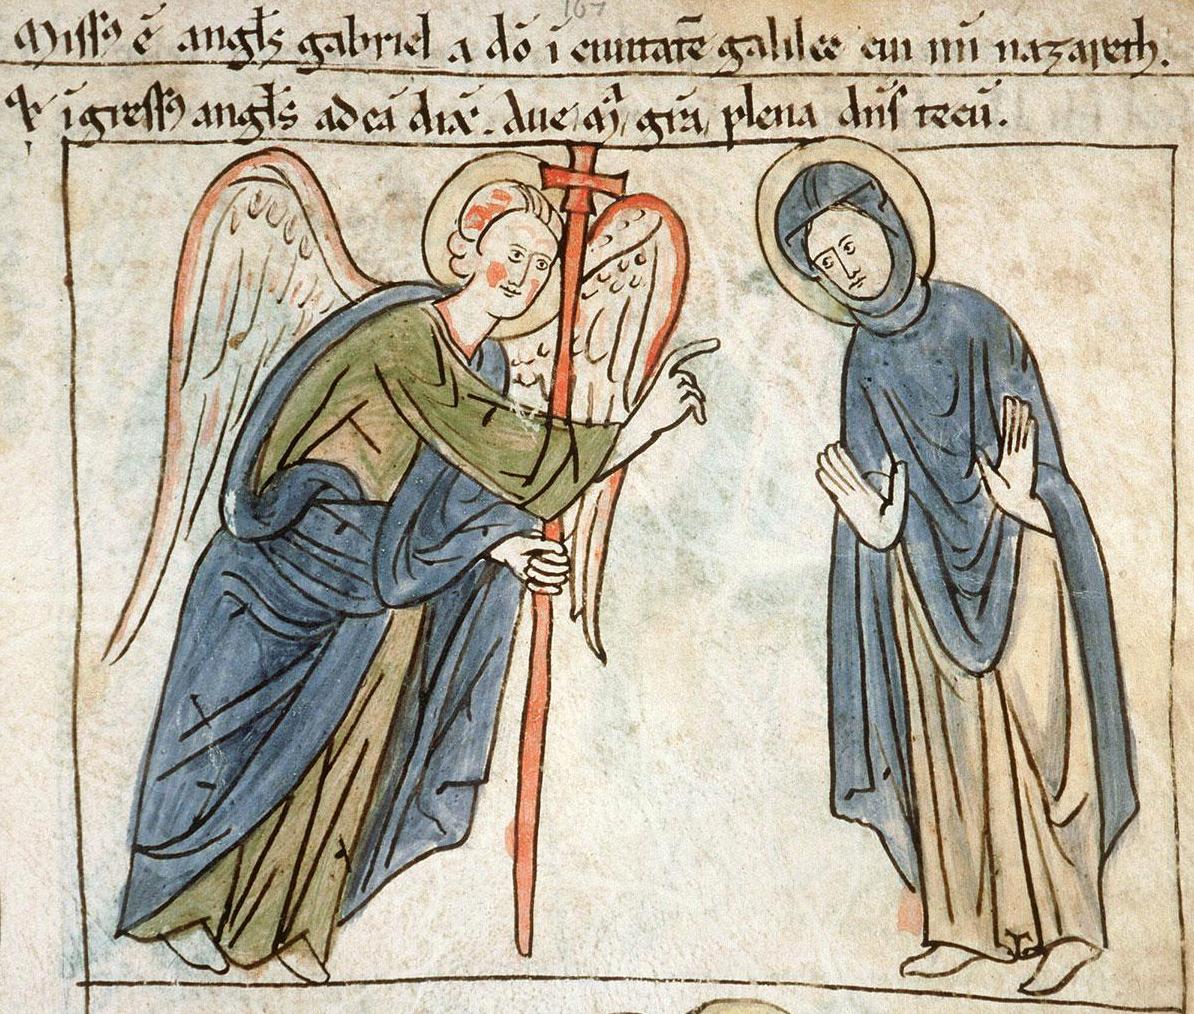 167
Missꝰ ē angl̄s gabriel a dō ī ciuitatē galilee cui nn̄ nazareth.
⁊ īgressꝰ angl̄s ad eā dix̄. Aue mͣ gr̄a plena dn̄s tecū.